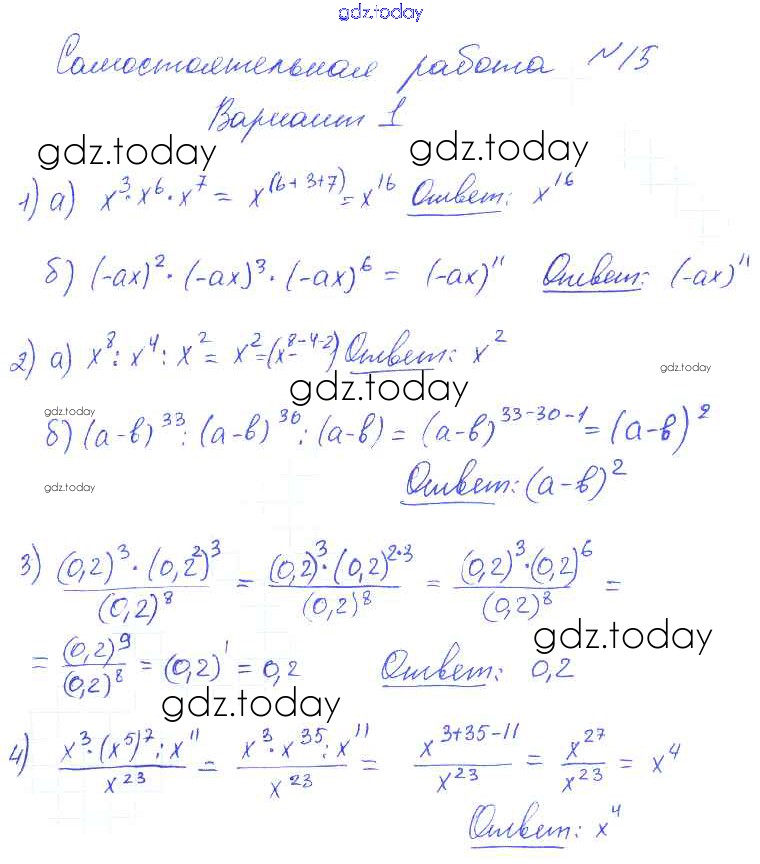 gdz.today
Самостоятельная работа №15
Вариант 1
gdz.today gdz.today
1) а) x³·x⁶·x⁷ = x⁽⁶⁺³⁺⁷⁾ = x¹⁶ Ответ: x¹⁶
б) (-ax)²·(-ax)³·(-ax)⁶ = (-ax)¹¹ Ответ: (-ax)¹¹
2) а) x⁸ : x⁴ : x² = x² = (x⁸⁻⁴⁻²) Ответ: x²
gdz.today gdz.today
б) (a-b)³³ : (a-b)³⁰ : (a-b) = (a-b)³³⁻³⁰⁻¹ = (a-b)²
gdz.today
gdz.today Ответ: (a-b)²
3) (0,2)³·(0,2²)³ / (0,2)⁸ = (0,2)³·(0,2)^(2·3) / (0,2)⁸ = (0,2)³·(0,2)⁶ / (0,2)⁸ =
= (0,2)⁹ / (0,2)⁸ = (0,2)¹ = 0,2 Ответ: 0,2
gdz.today
gdz.today
4) x³·(x⁵)⁷ : x¹¹ / x²³ = x³·x³⁵ : x¹¹ / x²³ = x³⁺³⁵⁻¹¹ / x²³ = x²⁷ / x²³ = x⁴
Ответ: x⁴